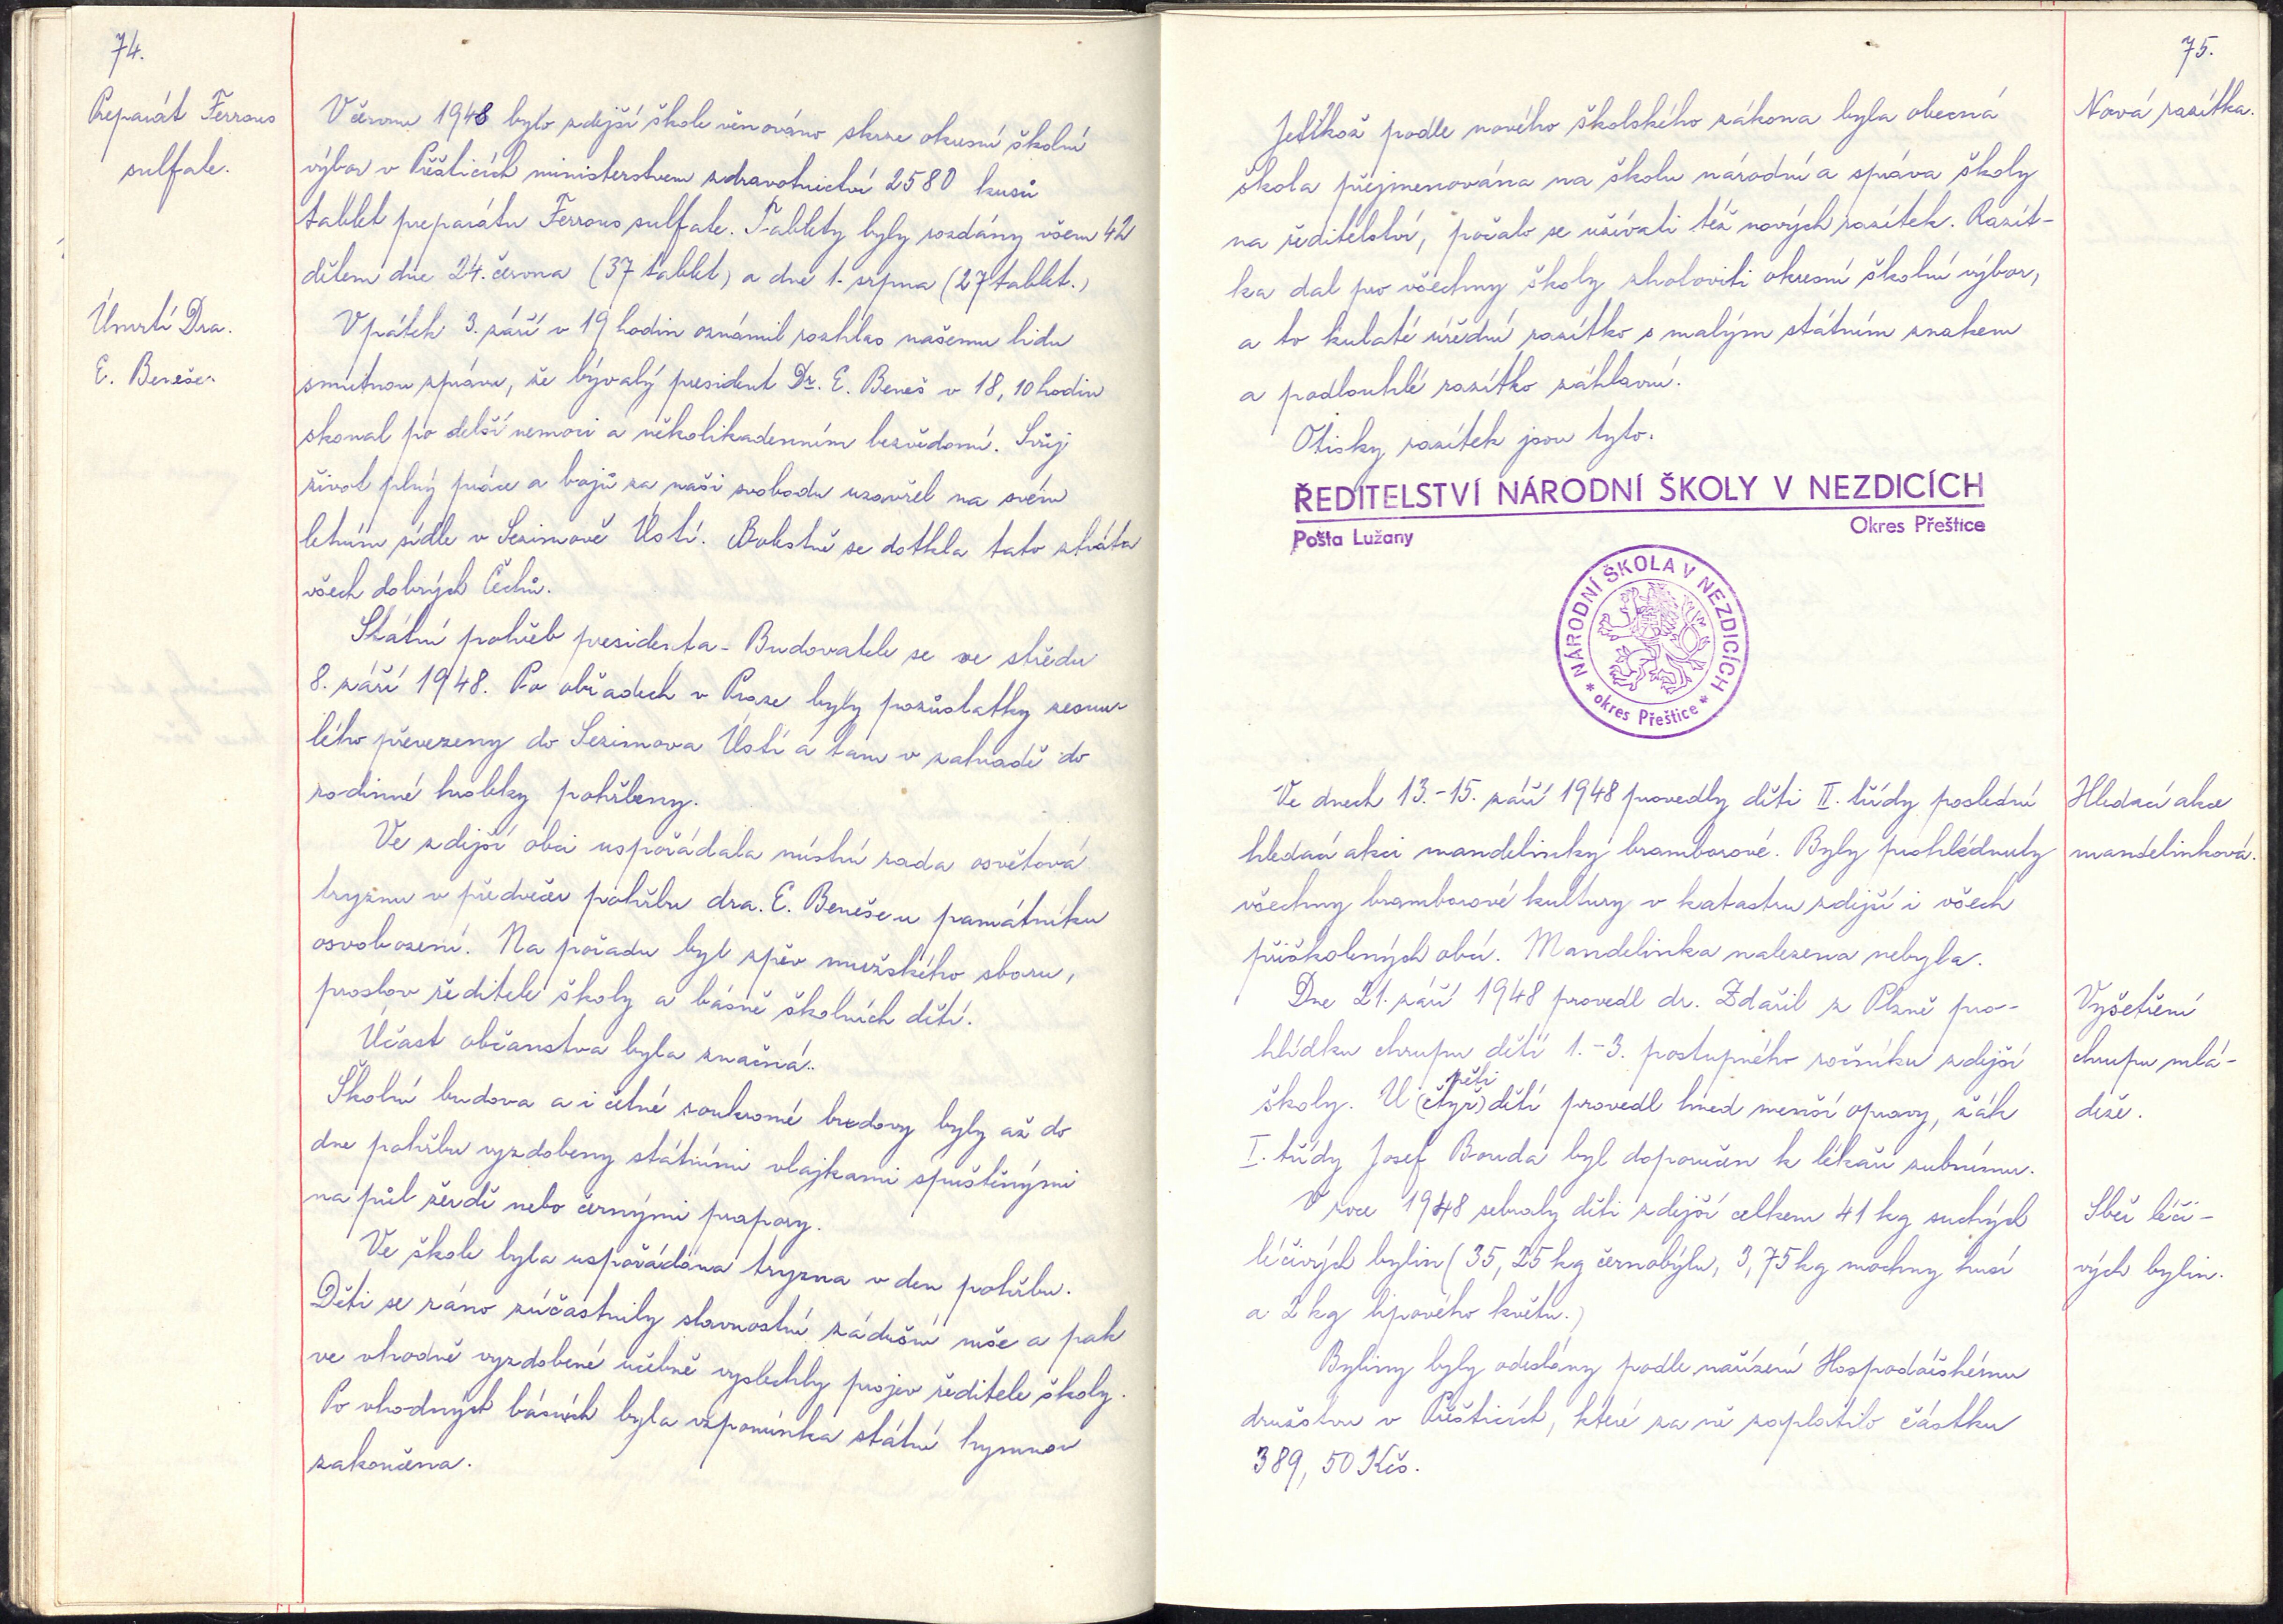 74.
Preparát Ferrous
sulfate.
V červnu 1948 bylo zdejší škole věnováno skrze okresní školní
výbor v Přešticích ministerstvem zdravotnictví 2580 kusů
tablet preparátu Ferrous sulfate. Tablety byly rozdány všem 42
dětem dne 24. června (37 tablet) a dne 1. srpna (27 tablet.)
Úmrtí Dra.
E. Beneše.
V pátek 3. září v 19 hodin oznámil rozhlas našemu lidu
smutnou zprávu, že bývalý president Dr. E. Beneš v 18,10 hodin
skonal po delší nemoci a několikadenním bezvědomí. Svůj
život plný práce a bojů za naši svobodu uzavřel na svém
letním sídle v Sezimově Ústí. Bolestně se dotkla tato ztráta
všech dobrých Čechů.
Státní pohřeb presidenta-Budovatele se ve středu
8. září 1948. Po obřadech v Praze byly pozůstatky zesnu-
lého převezeny do Sezimova Ústí a tam v zahradě do
rodinné hrobky pohřbeny.
Ve zdejší obci uspořádala místní rada osvětová
tryznu v předvečer pohřbu dra. E. Beneše u památníku
osvobození. Na pořadu byl zpěv mužského sboru,
proslov ředitele školy a básně školních dětí.
Účast občanstva byla značná.
Školní budova a i četné soukromé budovy byly až do
dne pohřbu vyzdobeny státními vlajkami spuštěnými
na půl žerdi nebo černými prapory.
Ve škole byla uspořádána tryzna v den pohřbu.
Děti se ráno zúčastnily slavnostní zádušní mše a pak
ve vhodně vyzdobené učebně vyslechly projev ředitele školy.
Po vhodných básních byla vzpomínka státní hymnou
zakončena.
75.
Nová razítka.
Jelikož podle nového školského zákona byla obecná
škola přejmenována na školu národní a správa školy
na ředitelství, počalo se užívati též nových razítek. Razít-
ka dal pro všechny školy zhotoviti okresní školní výbor,
a to kulaté úřední razítko s malým státním znakem
a podlouhlé razítko záhlavní.
Otisky razítek jsou tyto.
ŘEDITELSTVÍ NÁRODNÍ ŠKOLY V NEZDICÍCH
Pošta Lužany
Okres Přeštice
NÁRODNÍ ŠKOLA V NEZDICÍCH
* okres Přeštice *
Ve dnech 13.-15. září 1948 provedly děti II. třídy poslední
hledací akci mandelinky bramborové. Byly prohlédnuty
všechny bramborové kultury v katastru zdejší i všech
přiškolených obcí. Mandelinka nalezena nebyla.
Hledací akce
mandelinková.
Dne 21. září 1948 provedl dr. Zdařil z Plzně pro-
hlídku chrupu dětí 1.-3. postupného ročníku zdejší
pěti
školy. U (čtyř) dětí provedl hned menší opravy, žák
I. třídy Josef Bouda byl doporučen k lékaři zubnímu.
Vyšetření
chrupu mlá-
deže.
V roce 1948 sebraly děti zdejší celkem 41 kg suchých
léčivých bylin (35,25 kg černobýlu, 3,75 kg mochny husí
a 2 kg lipového květu.)
Sběr léči-
vých bylin.
Byliny byly odeslány podle nařízení Hospodářskému
družstvu v Přešticích, které za ně zaplatilo částku
389,50 Kčs.